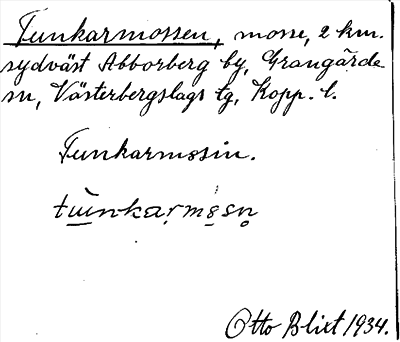 Tunkarmossen, mosse, 2 km.
sydväst Abborberg by, Grangärde
sn, Västerbergslags tg, Kopp. l.
Tunkarmosin.
Otto Blixt 1934.